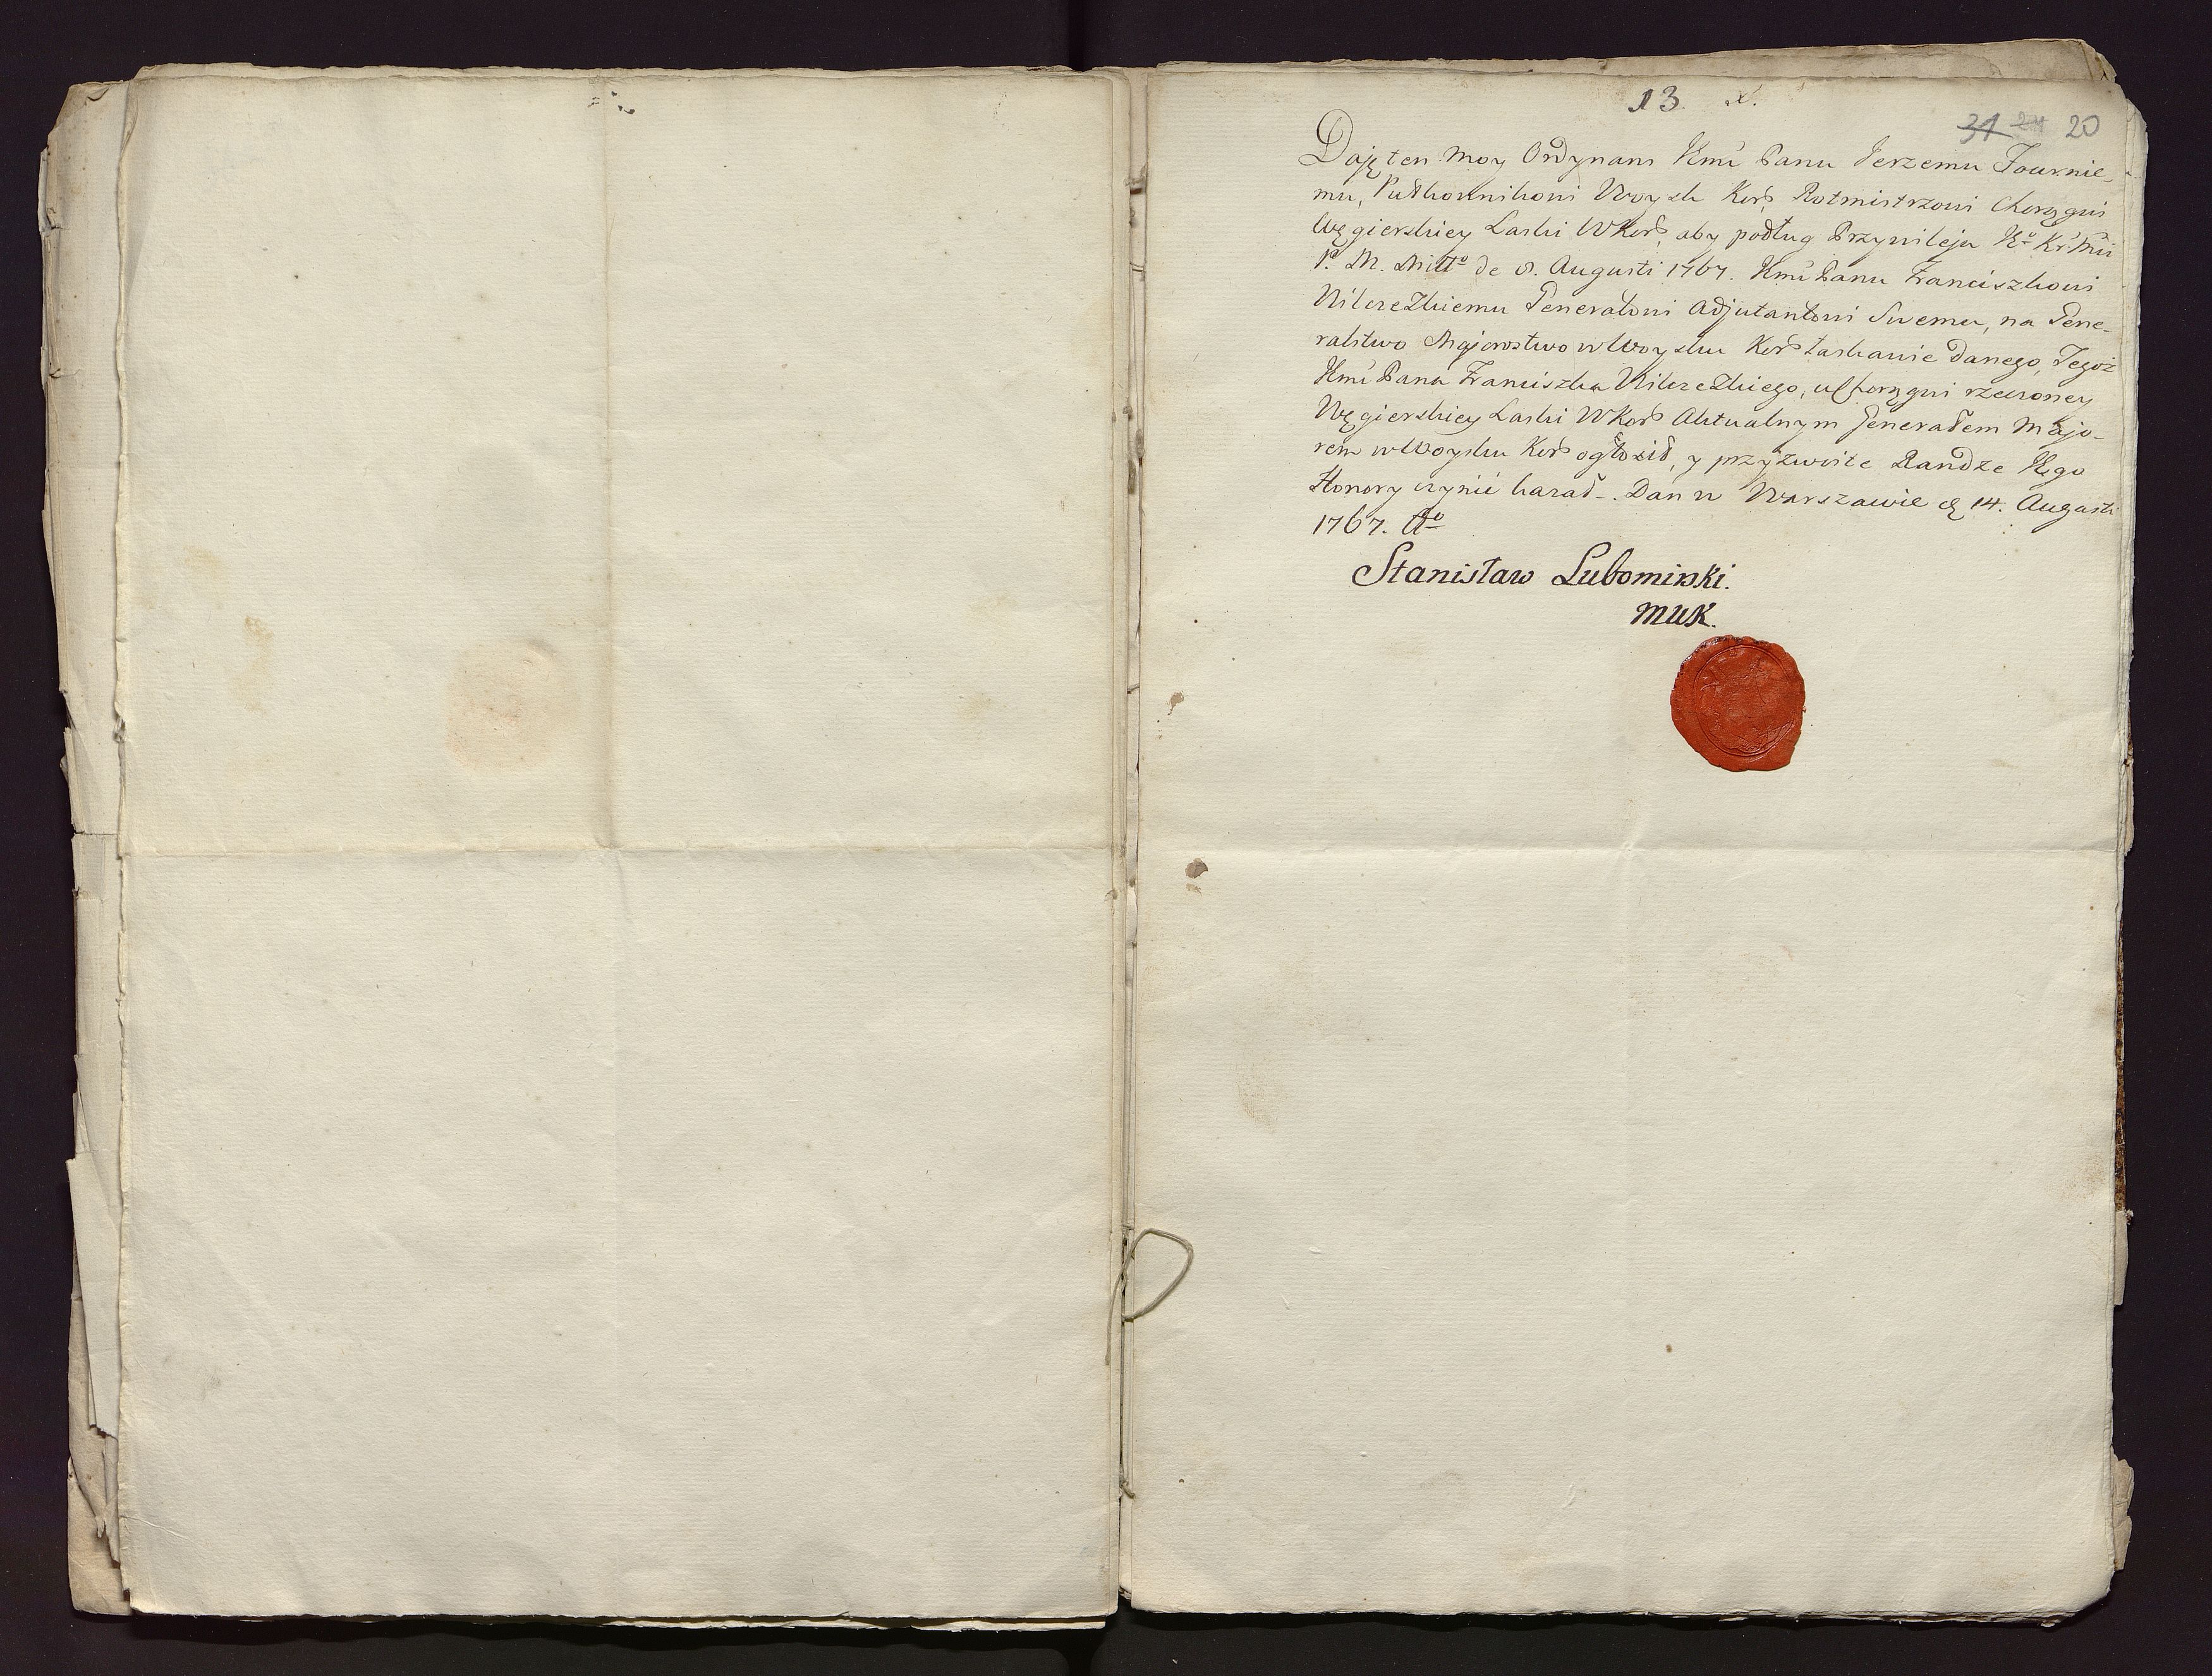 13 x.
31 24 20
Daję ten moy Ordynans Jmci Panu Jerzemu Fournie-
mu, Pułkownikowi Woysk Kor. Rotmistrzowi Chorągwi
Węgierskiey Laski WKor. aby podług Przywileju Jo Kr. Mci
P. M. Miłło de 8. Augusti 1767. Jmci Panu Franciszkowi
Wilczewskiemu Generałowi Adjutantowi Swemu, na Gene-
ralstwo Majorostwo w Woysku Kor. łaskawie danego, Tegoż
Jmci Pana Franciszka Wilczewskiego, u Chorągwi rzeczoney
Węgierskiey Laski WKor. Aktualnym Generałem Majo-
rem w Woysku Kor. ogłosił, y przyzwoite Randze Jego
Honory czynić kazał. Dan w Warszawie d. 14. Augusti
1767. Ao
Stanisław Lubomirski.
MWK.